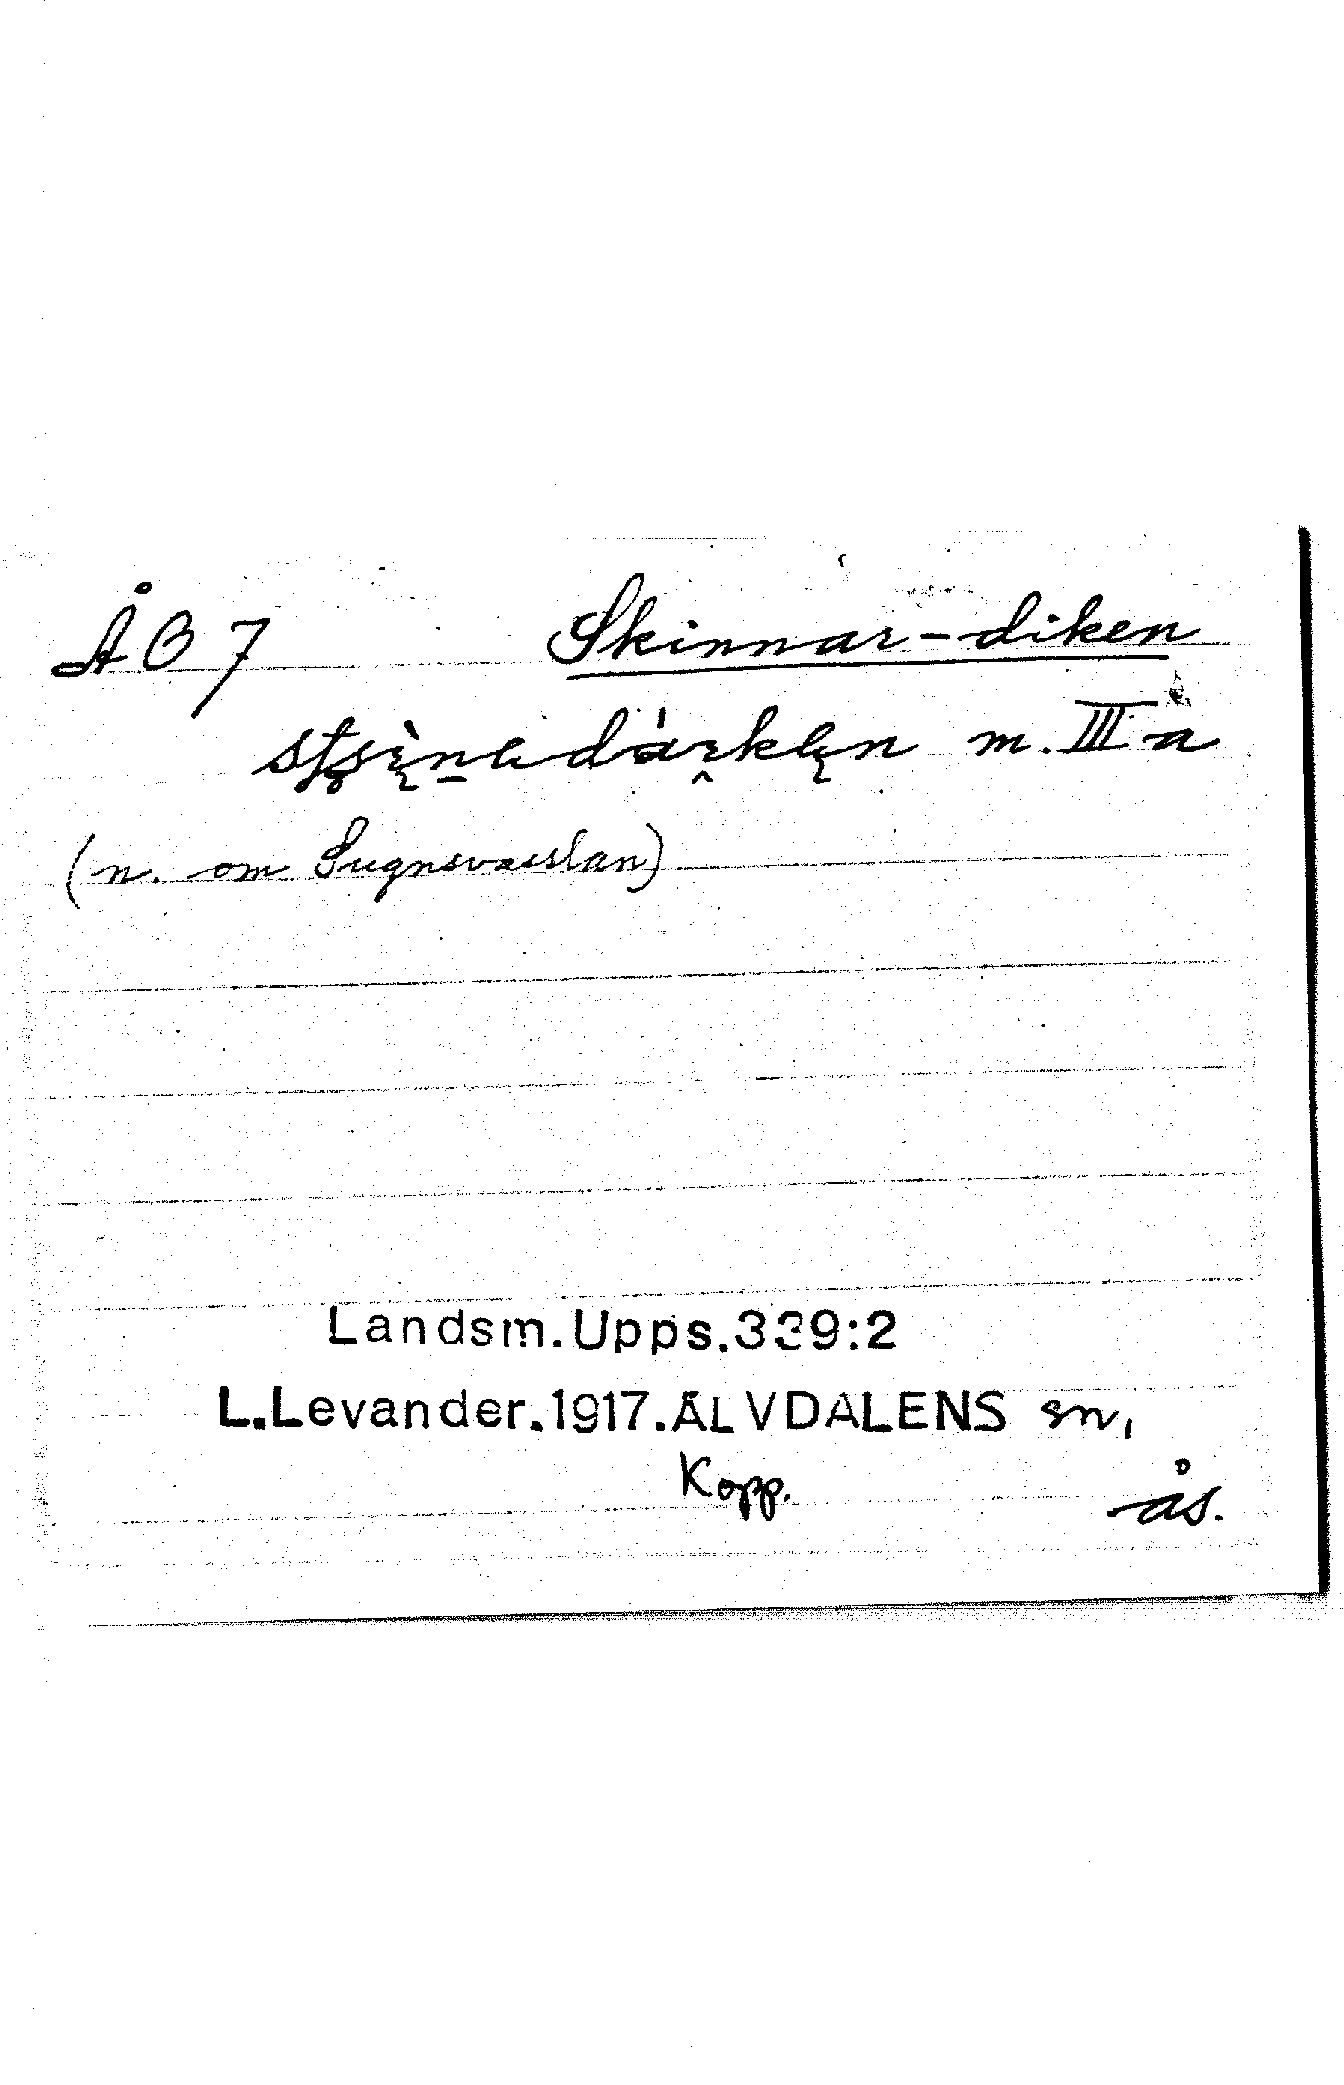 ÅB 7 Skinnar-diken
m. III a
(n. om Sugnsvasslan)
Landsm.Upps.339:2
L.Levander.1917.ÄLVDALENS sn,
Kopp. ås.